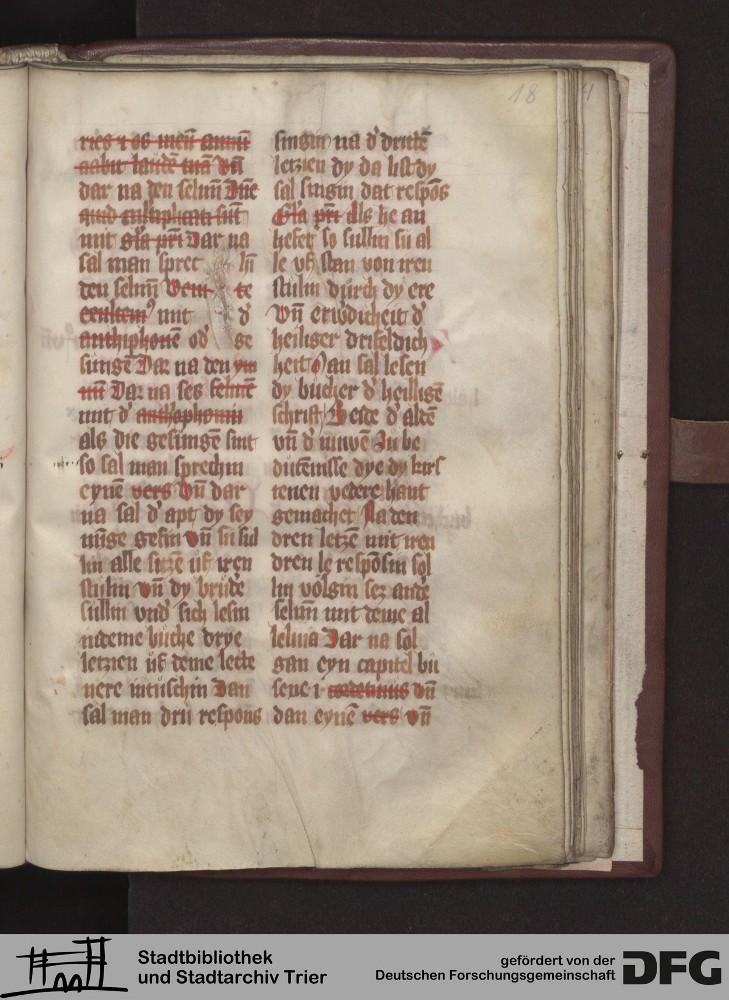 18
4
ries ⁊ os meū annū
aabit laudē tuā Vn̄
dar na den selmē Dn̄e
quid multiplicati sūt
mit gl'a pr̄i Dar na
sal man spret hn̄
den selmē Venite
exultem' mit d'
anthiphonē od' ge
singē Dar na den ym
nū Dar na ses selmē
mit d' anthiphonin
als die gesingē sint
so sal man sprechin
eynē vers Vn̄ dar
na sal d' apt dy sey
nūge gebin vn̄ sn̄ sul
lin alle sitzē ūf iren
stulin vn̄ dy brude
sullin vnd' sich lesin
ndeme buche drye
letzien ūf deme lecte
nere intuschin Dan
sal man drii respons
singin na d' drittē
letzien dy da list dy
sal singin dat respōs
Gl'a pr̄i Als he an
hebet so sullin sii al
le vf stan von iren
stulin durch dy ere
Vn̄ erwdicheit d'
heiliger driueldich
heit Man sal lesen
dy bucher d' heiligē
schrift Beide d' aldē
vn̄ d' nuwē Zu be
dutēnisse dye dy kirs
tenen vedere hant
gemachet Na den
dren letzē mit iren
dren le respōsin sol
lin volgin sez ande
selmin mit deme al
leluia Dar na sol
gan eyn capitel bu
sene ⁊ vn̄
dan eynē vers vn̄
Stadtbibliothek
und Stadtarchiv Trier
gefördert von der
Deutschen Forschungsgemeinschaft
DFG